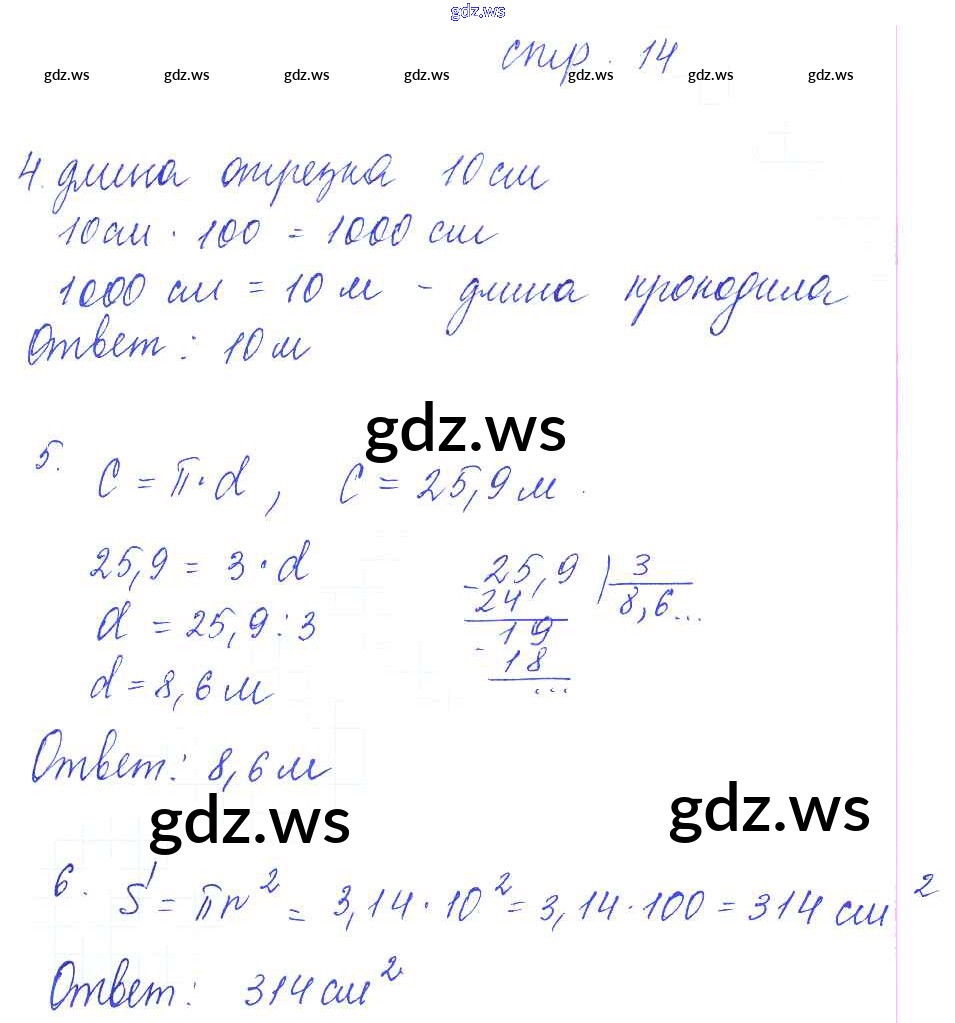 gdz.ws
стр. 14
gdz.ws gdz.ws gdz.ws gdz.ws gdz.ws gdz.ws gdz.ws
4. длина отрезка 10 см
10см · 100 = 1000 см
1000 см = 10 м - длина крокодила
Ответ: 10 м
gdz.ws
5. C = π · d, C = 25,9 м.
25,9 = 3 · d
d = 25,9 : 3
d = 8,6 м
- 25,9 | 3
24 8,6...
- 19
18
...
Ответ: 8,6 м
gdz.ws gdz.ws
6. S = πr² = 3,14 · 10² = 3,14 · 100 = 314 см²
Ответ: 314 см²